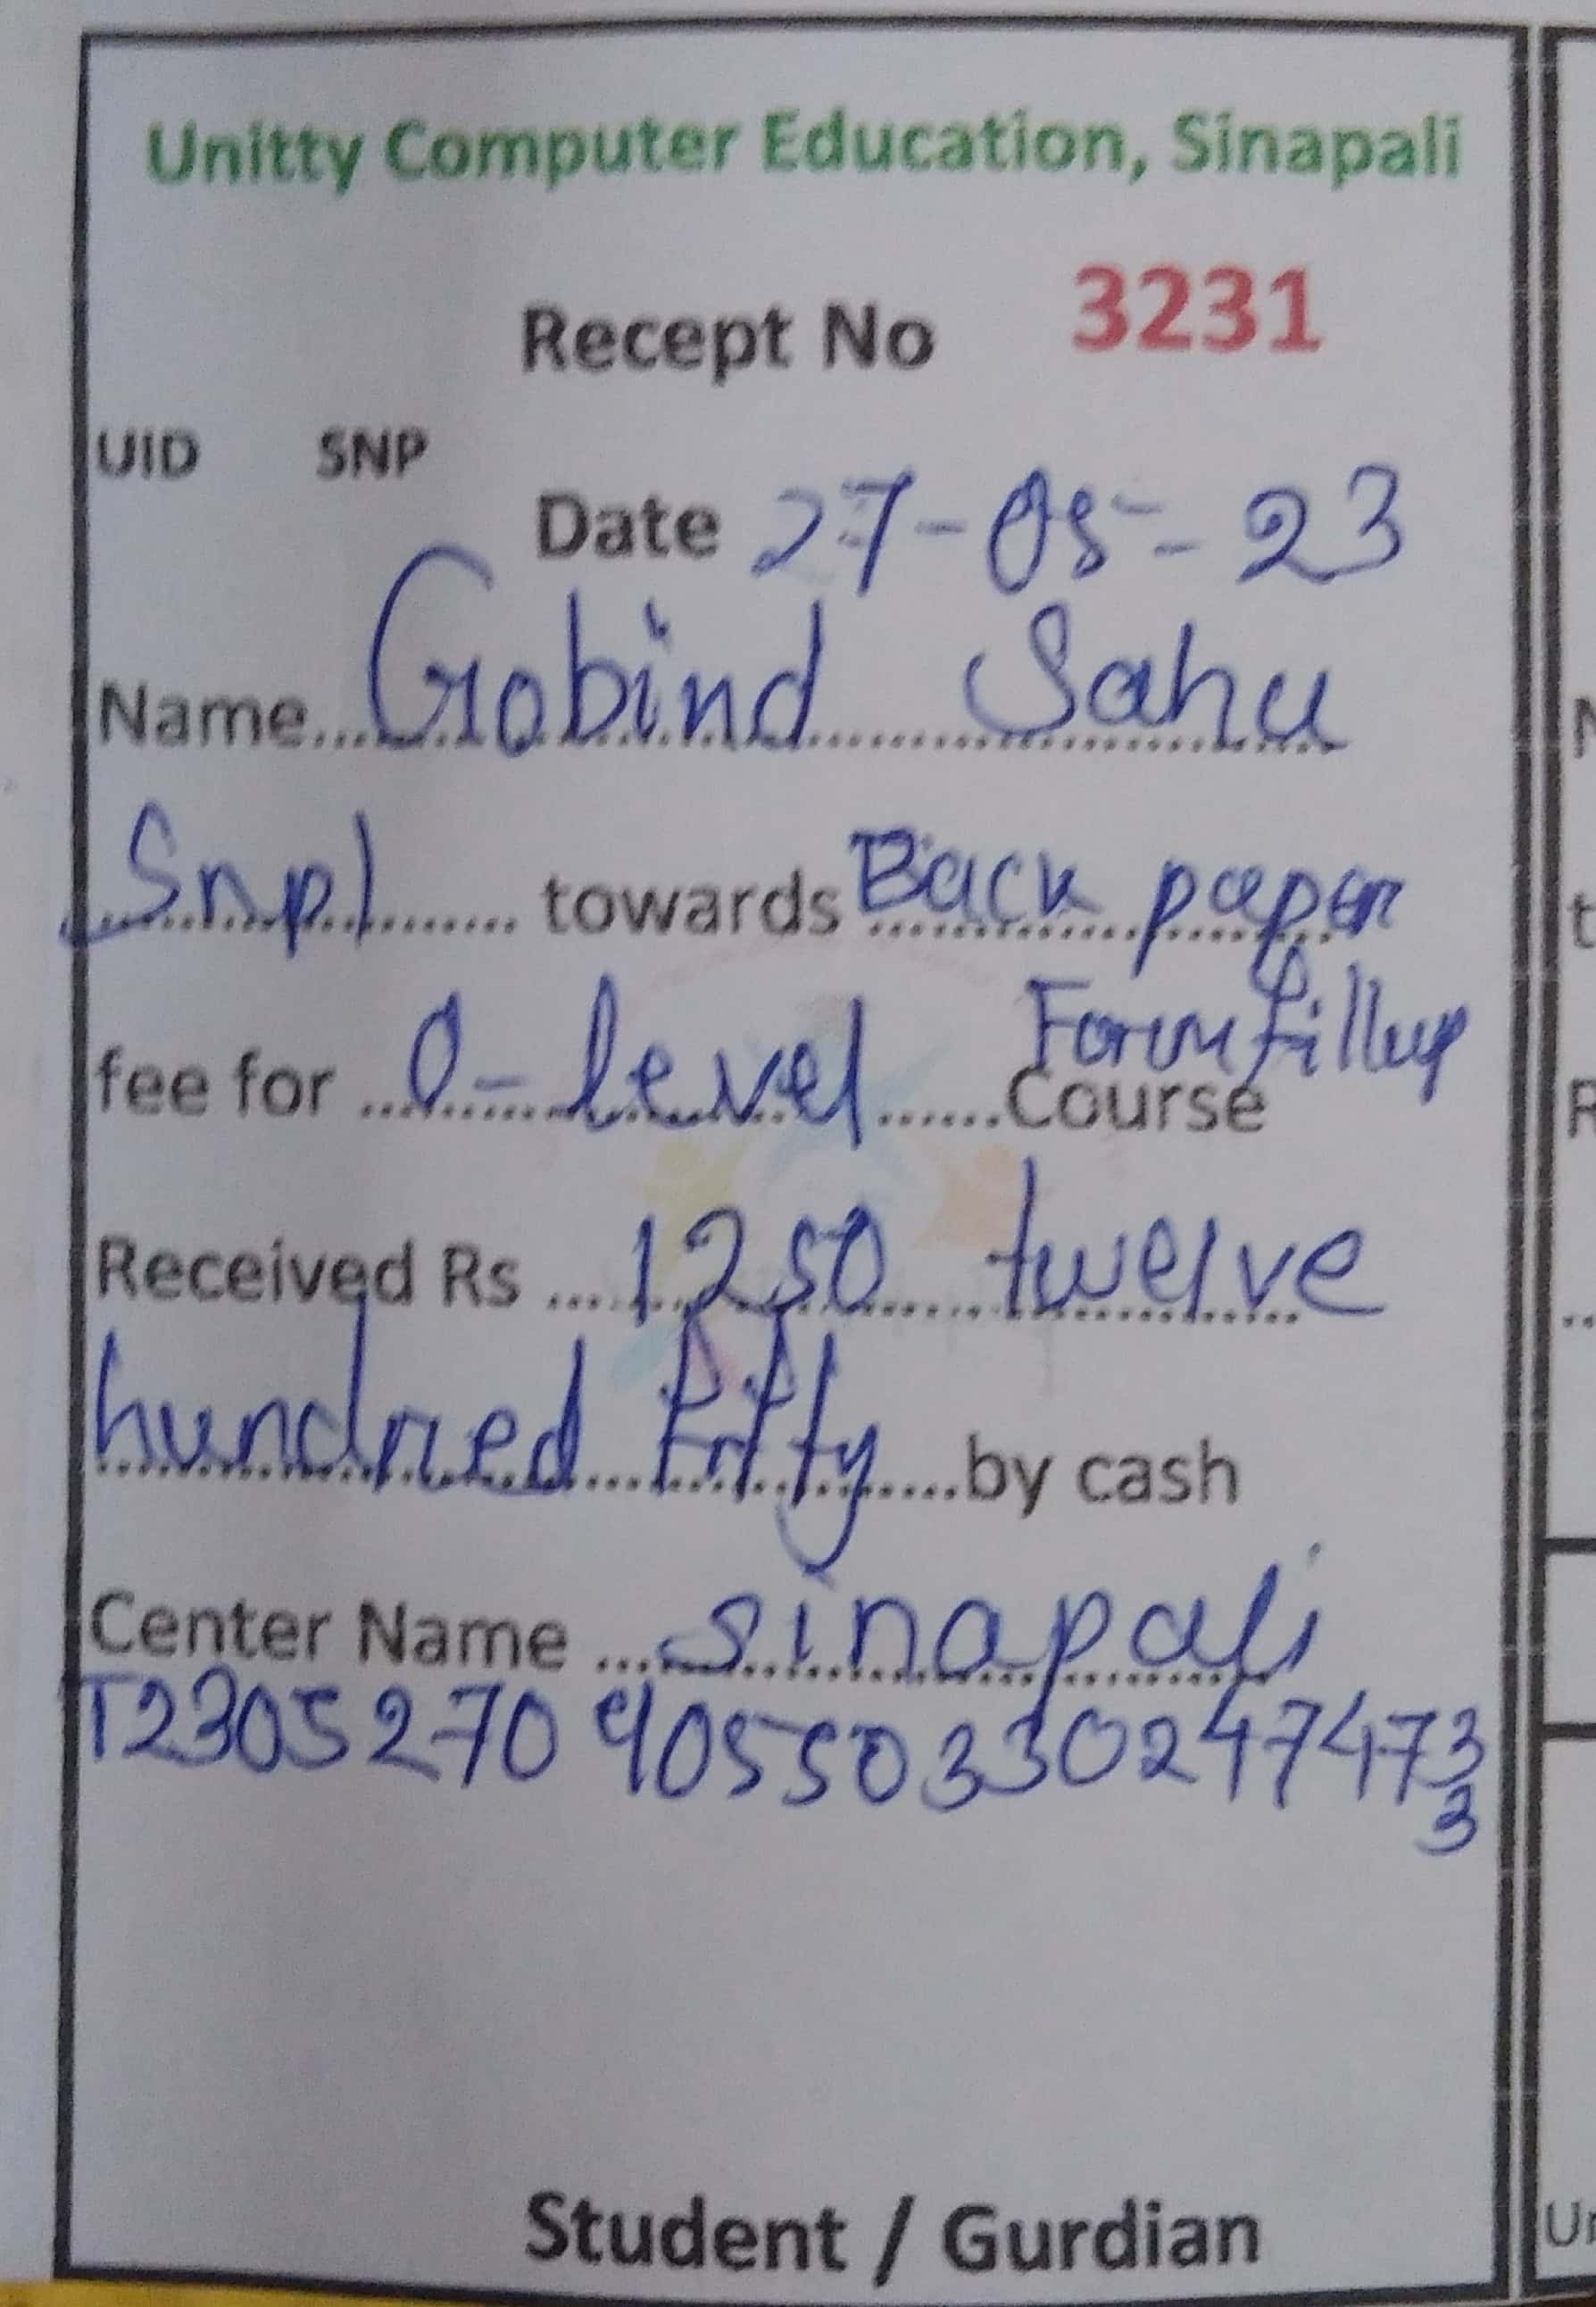 Unitty Computer Education, Sinapali
Recept No 3231
UID SNP
Date 27-05-23
Name...Gobind Sahu
Snpl towards Back paper
Form fillup
fee for ...O-level......Course
Received Rs ...1250 twelve
hundred fifty....by cash
Center Name ...sinapali
T2305270905503302474733
Student / Gurdian